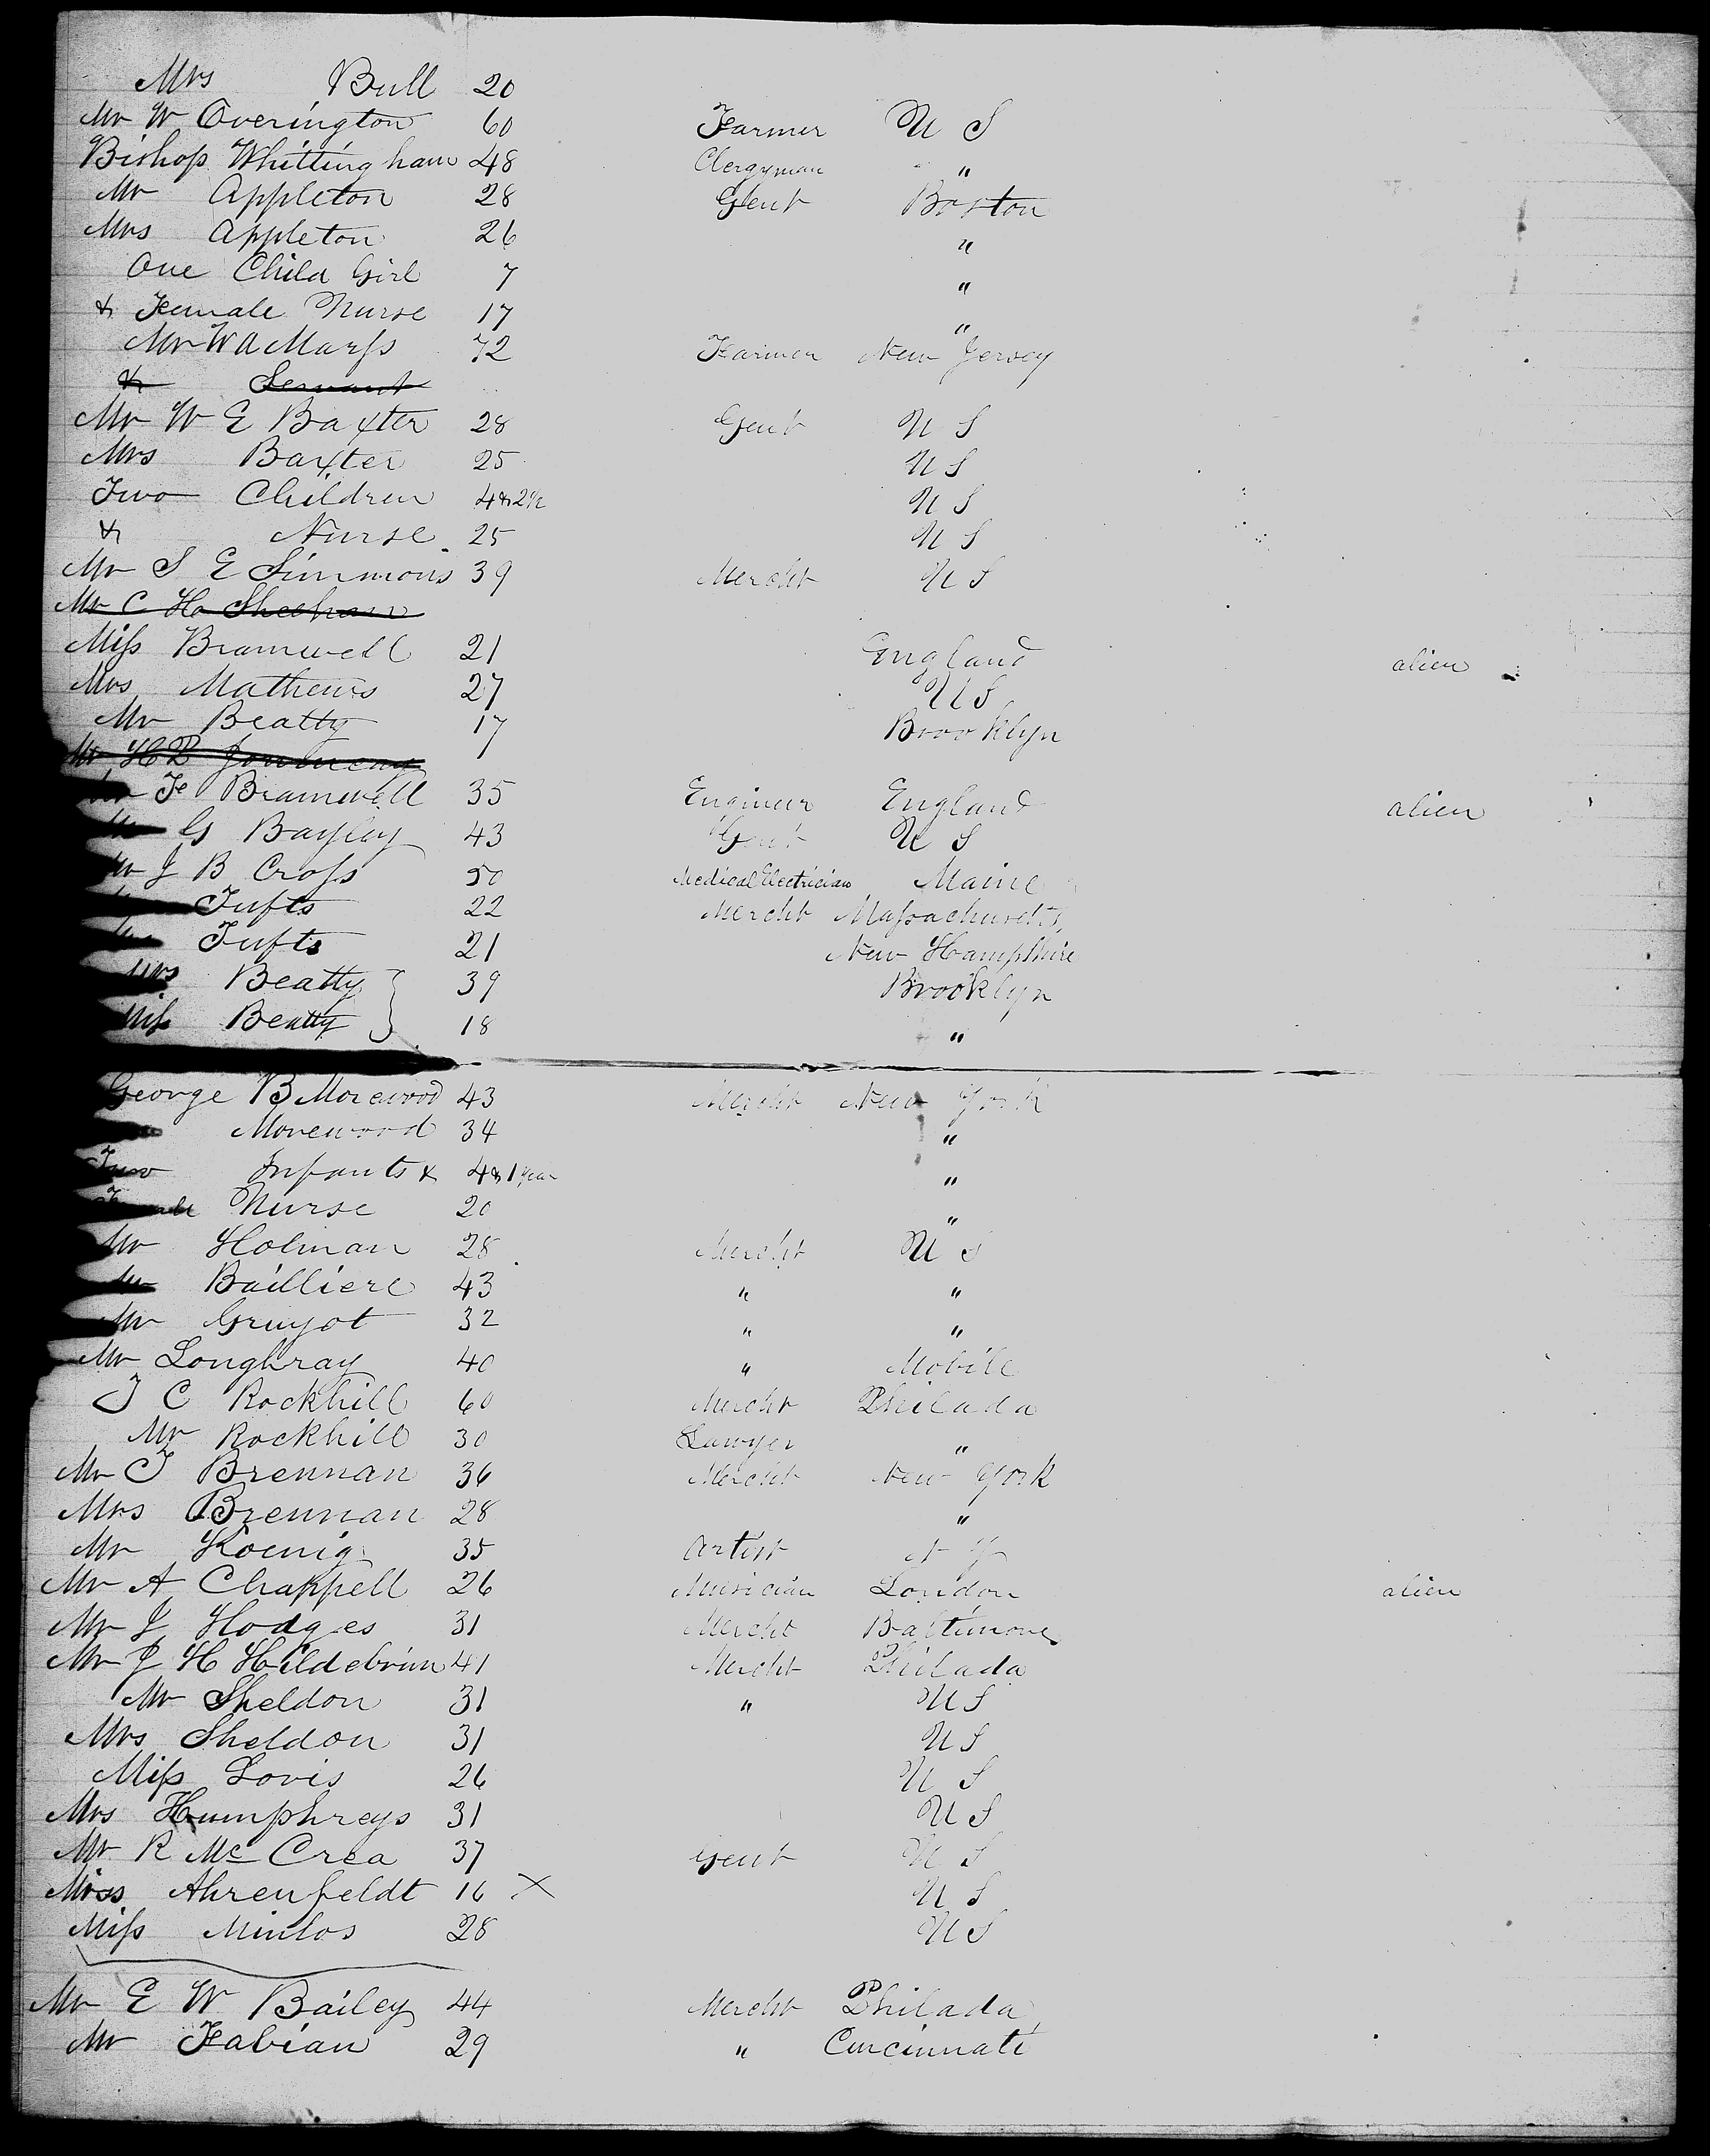 Mrs Bull 20
Mr W Overington 60 Farmer U S
Bishop Whittingham 48 Clergyman "
Mr Appleton 28 Gent Boston
Mrs Appleton 26 "
One Child Girl 7 "
& Female Nurse 17 "
Mr W A Marss 72 Farmer New Jersey
& Servant
Mr W E Baxter 28 Gent U S
Mrs Baxter 25 U S
Two Children 4 & 2½ U S
& Nurse 25 U S
Mr S E Simmons 39 Mercht U S
Mr C H Sheehan
Miss Bramwell 21 England alien
Mrs Mathews 27 U S
Mr Beatty 17 Brooklyn
Mr H B
F Bramwell 35 Engineer England alien
G Bayley 43 Gent U S
J B Cross 50 Medical Electrician Maine
Tufts 22 Mercht Massachusetts
Tufts 21 New Hampshire
Mrs Beatty 39 Brooklyn
Miss Beatty 18 "
George B Morewood 43 Mercht New York
Morewood 34 "
Two Infants & 4 & 1 year "
Female Nurse 20 "
Mr Holman 28 Mercht U S
Bailliere 43 " "
Mr Gruyot 32 " "
Mr Loughray 40 " Mobile
T C Rockhill 60 Mercht Philada
Mr Rockhill 30 Lawyer "
Mr T Brennan 36 Mercht New York
Mrs Brennan 28 "
Mr Koenig 35 Artist N Y
Mr A Chappell 26 Musician London alien
Mr J Hodges 31 Mercht Baltimore
Mr J H Hildebrun 41 Mercht Philada
Mr Sheldon 31 " U S
Mrs Sheldon 31 U S
Miss Lovis 26 U S
Mrs Humphreys 31 U S
Mr R McCrea 37 Gent U S
Miss Ahrenfeldt 16 X U S
Miss Minlos 28 U S
Mr E W Bailey 44 Mercht Philada
Mr Fabian 29 " Cincinnati